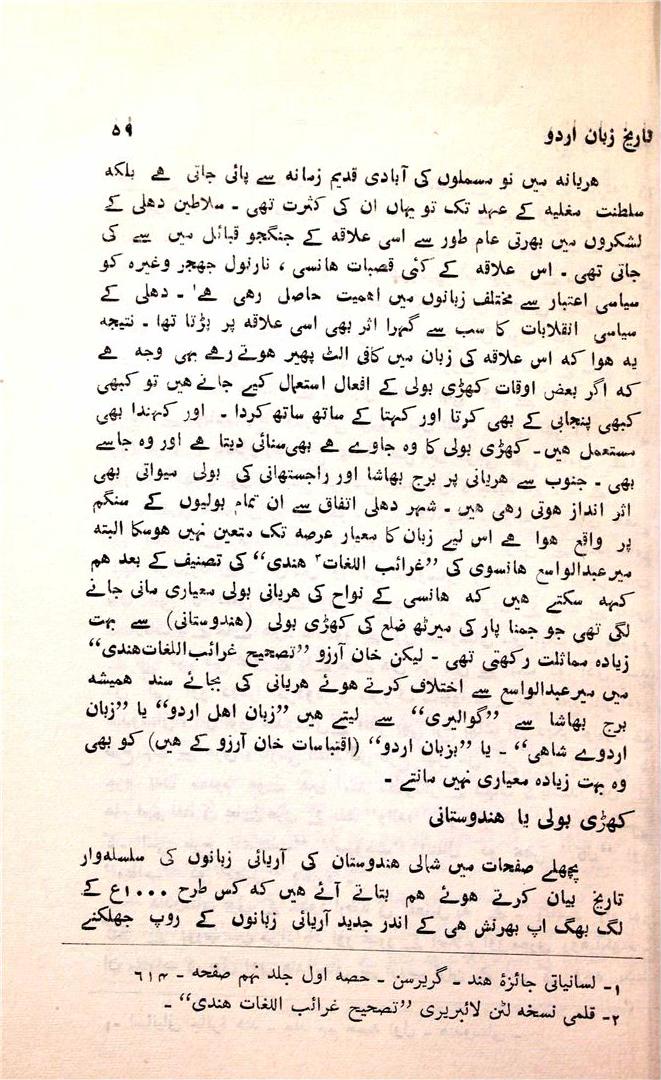 تاریخ زبان اردو ۵۹
هریانه میں نو مسلموں کی آبادی قدیم زمانه سے پائی جاتی ہے بلکه
سلطنت مغلیه کے عہد تک تو یہاں ان کی کثرت تھی ۔ سلاطین دهلی کے
لشکروں میں بھرتی عام طور سے اسی علاقه کے جنگجو قبائل میں سے کی
جاتی تھی ۔ اس علاقه کے کئی قصبات هانسی ، نارنول جھجر وغیره کو
سیاسی اعتبار سے مختلف زبانوں میں اهمیت حاصل رهی ہے¹ ۔ دهلی کے
سیاسی انقلابات کا سب سے گہرا اثر بھی اسی علاقه پر پڑتا تھا ۔ نتیجه
یه هوا که اس علاقه کی زبان میں کافی الٹ پھیر هوتے رهے یہی وجه ہے
که اگر بعض اوقات کھڑی بولی کے افعال استعمال کیے جاتے هیں تو کبھی
کبھی پنجابی کے بھی کرتا اور کہتا کے ساتھ ساتھ کردا ۔ اور کہندا بھی
مستعمل هیں ۔ کھڑی بولی کا وه جاوے ہے بھی سنائی دیتا ہے اور وه جاسے
بھی ۔ جنوب سے هریانی پر برج بھاشا اور راجستھانی کی بولی میواتی بھی
اثر انداز هوتی رهی هیں ۔ شہر دهلی اتفاق سے ان تمام بولیوں کے سنگم
پر واقع هوا ہے اس لیے زبان کا معیار عرصه تک متعین نہیں هوسکا البته
میر عبدالواسع هانسوی کی ”غرائب اللغات² هندی“ کی تصنیف کے بعد هم
کہه سکتے هیں که هانسی کے نواح کی هریانی بولی معیاری مانی جانے
لگی تھی جو جمنا پار کی میرٹھ ضلع کی کھڑی بولی (هندوستانی) سے بہت
زیاده مماثلت رکھتی تھی ۔ لیکن خان آرزو ”تصحیح غرائب اللغات هندی“
میں میر عبدالواسع سے اختلاف کرتے هوئے هریانی کی بجائے سند همیشه
برج بھاشا سے ”گوالیری“ سے لیتے هیں ”زبان اهل اردو“ یا ”زبان
اردوے شاهی“ ۔ یا ”بزبان اردو“ (اقتباسات خان آرزو کے هیں) کو بھی
وه بہت زیاده معیاری نہیں مانتے ۔
کھڑی بولی یا هندوستانی
پچھلے صفحات میں شمالی هندوستان کی آریائی زبانوں کی سلسله وار
تاریخ بیان کرتے هوئے هم بتاتے آئے هیں که کس طرح ۱۰۰۰ع کے
لگ بھگ اپ بھرنش هی کے اندر جدید آریائی زبانوں کے روپ جھلکنے
۱۔ لسانیاتی جائزۂ هند ۔ گریرسن ۔ حصه اول جلد نہم صفحه ۔ ۶۱۴
۲۔ قلمی نسخه لٹن لائبریری ”تصحیح غرائب اللغات هندی“ ۔